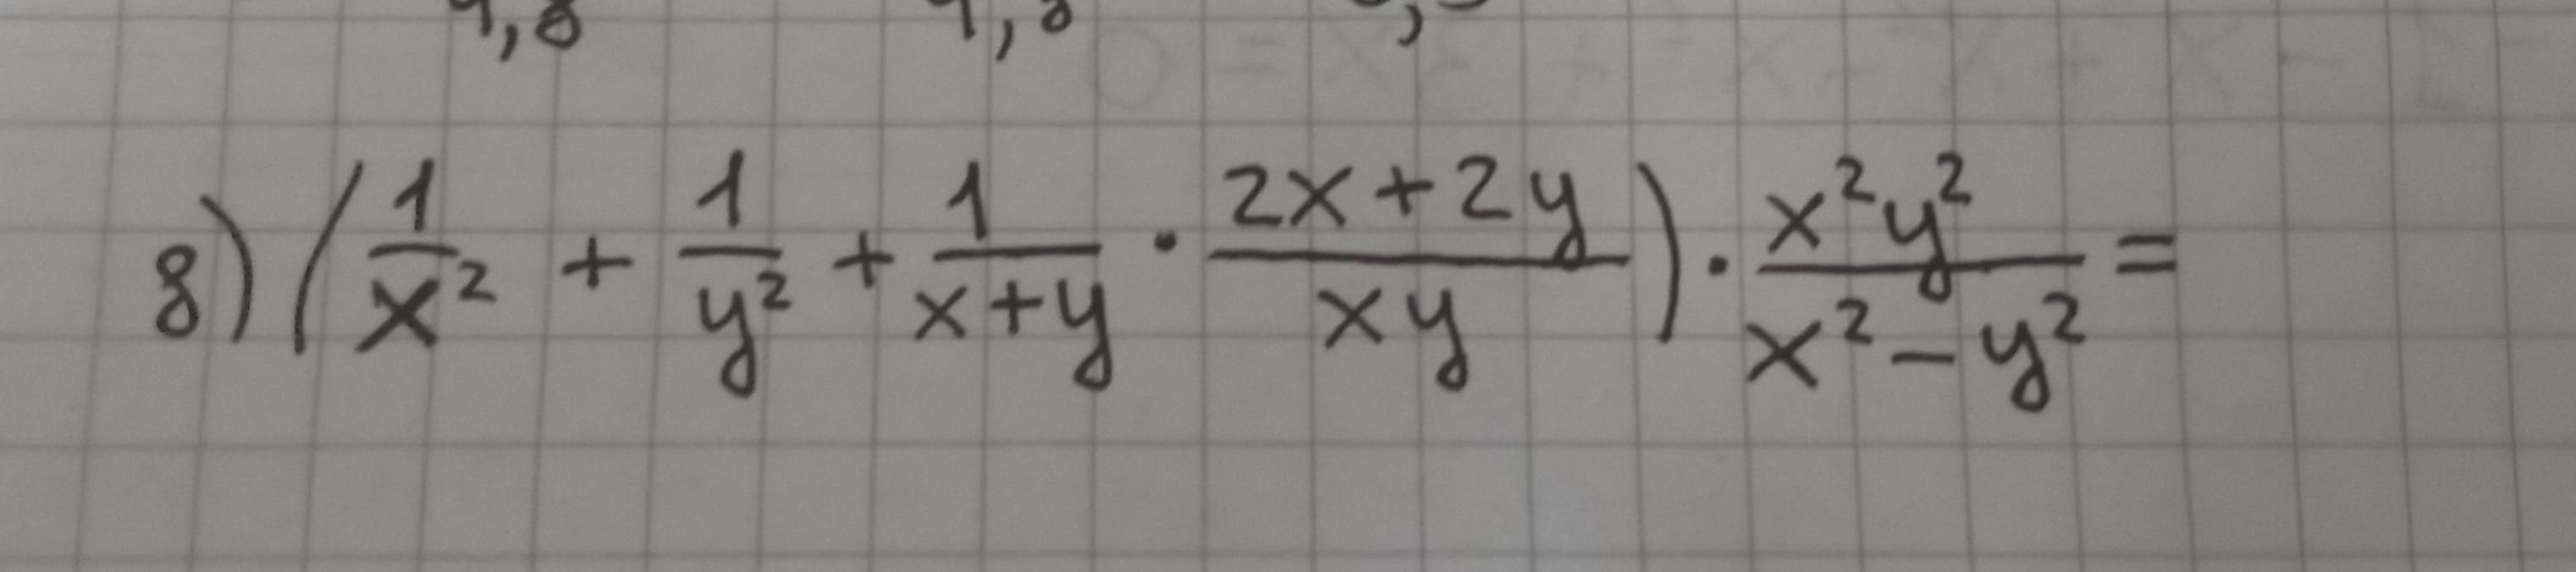 8) (1/x² + 1/y² + 1/(x+y) · (2x+2y)/(xy)) · (x²y²)/(x²-y²) =